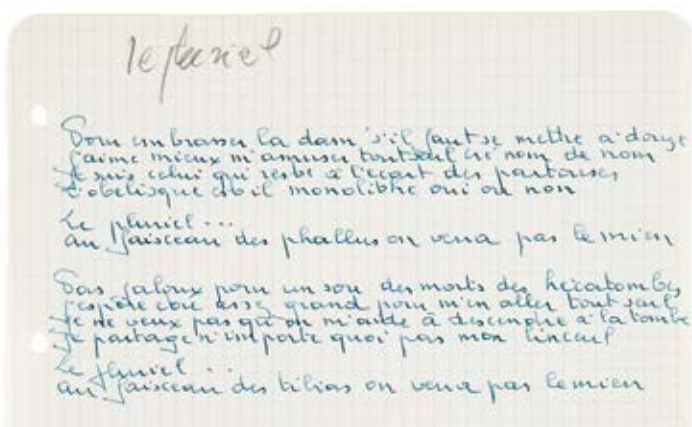 le pluriel
Pour embrasser la dam' s'il faut se mettre a douze
j'aime mieux m'amuser tout seul cré nom de nom
je suis celui qui reste a l'ecart des partouses
L'obelisque est il monolithe oui ou non
Le pluriel...
au faisceau des phallus on verra pas le mien
Pas jaloux pour un sou des morts des hecatombes
j'espère être assez grand pour m'en aller tout seul
je ne veux pas qu'on m'aide à descendre a la tombe
je partage n'importe quoi pas mon linceul
Le pluriel...
au faisceau des tibias on verra pas le mien